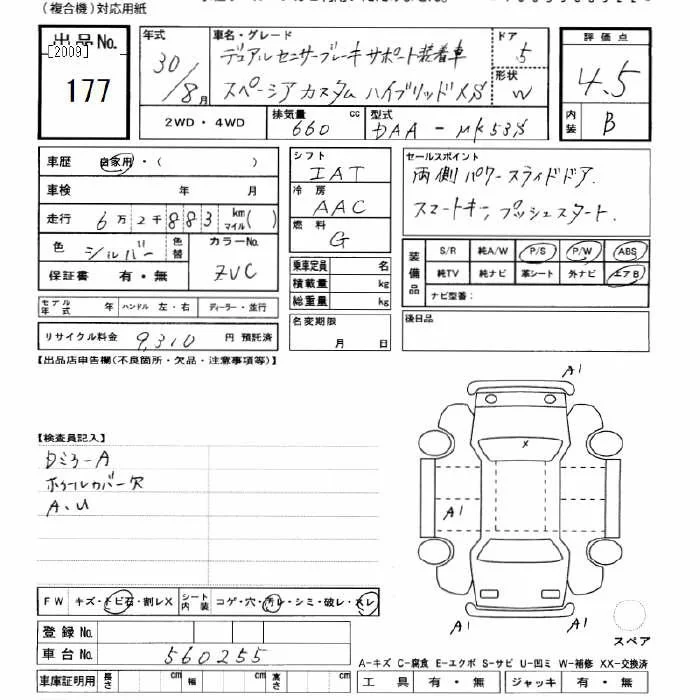 (複合機)対応用紙
出品No.
[2009]
177
年式
30/8月
車名・グレード
デュアルセンサーブレーキサポート装着車
スペーシアカスタム ハイブリッドXS
ドア
5
形状
W
評価点
4.5
内装
B
2WD・4WD
排気量
660 cc
型式
DAA-MK53S
車歴 自家用・( )
車検 年 月
走行 6万2千883 km マイル( )
色 シルバー 色替
カラーNo.
ZVC
保証書 有・無
モデル年式 年 ハンドル 左・右 ディーラー・並行
リサイクル料金 9,310 円 預託済
シフト
IAT
冷房
AAC
燃料
G
乗車定員 名
積載量 kg
総重量 kg
名変期限
月 日
セールスポイント
両側パワースライドドア.
スマートキー, プッシュスタート.
装備品
S/R 純A/W P/S P/W ABS
純TV 純ナビ 革シート 外ナビ エアB
ナビ型番:
後日品
【出品店申告欄(不良箇所・欠品・注意事項等)】
【検査員記入】
Dミラ-A
ホイールカバー欠
A.U
A1
x
A1
A1
スペア
FW キズ・トビ石・割レX
シート内装 コゲ・穴・汚レ・シミ・破レ・スレ
登録No.
車台No. 560255
車庫証明用 長さ cm 幅 cm 高さ cm
A-キズ C-腐食 E-エクボ S-サビ U-凹ミ W-補修 XX-交換済
工具 有・無 ジャッキ 有・無